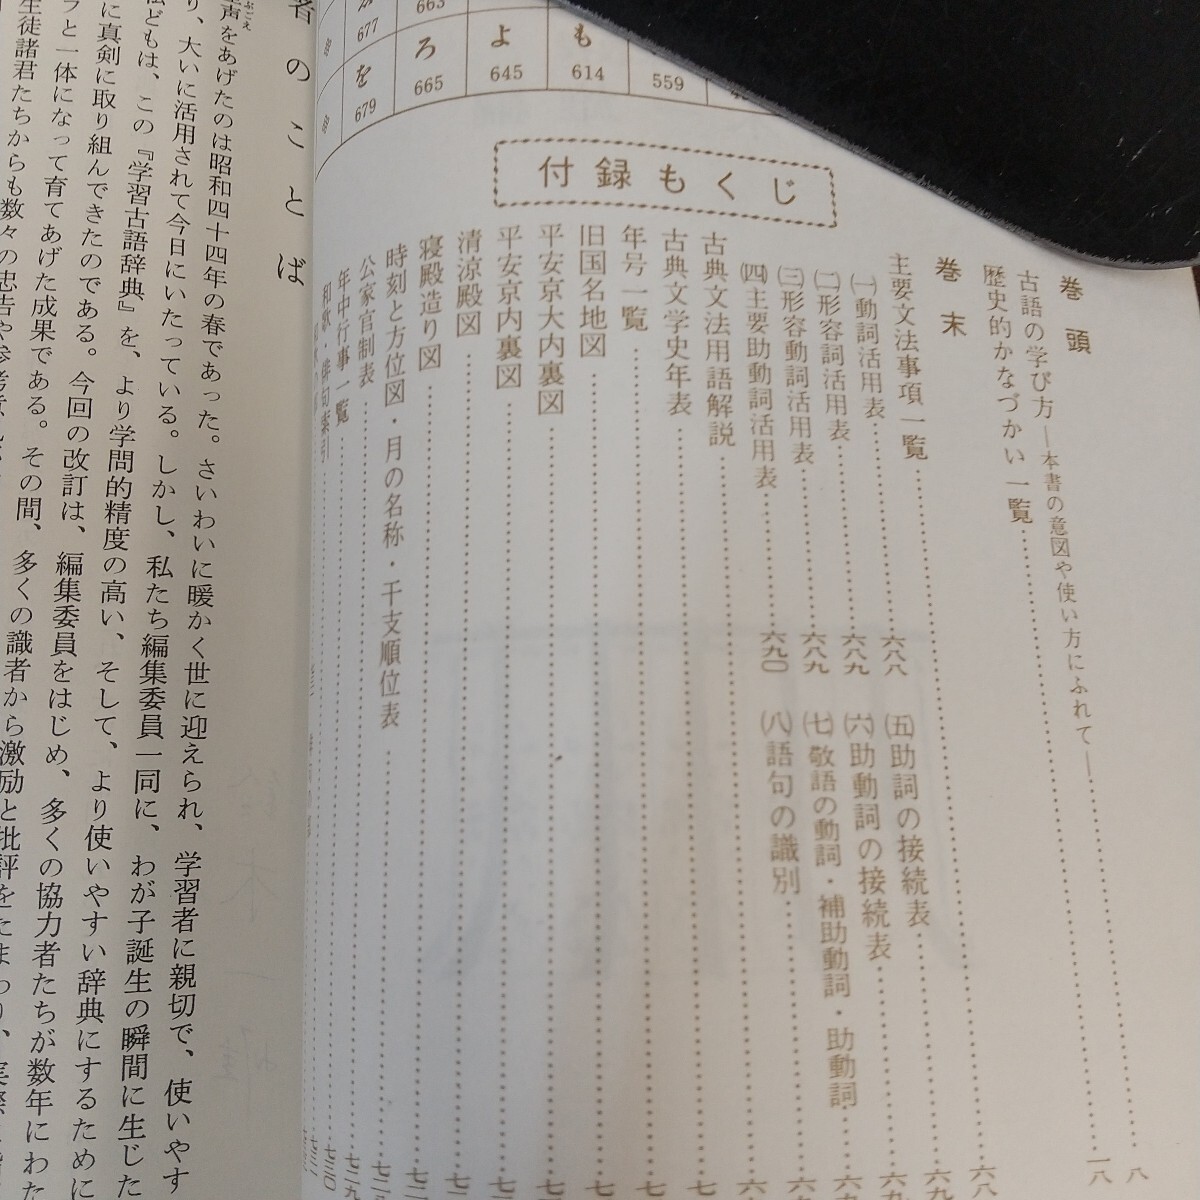 も
よ
ろ
を
614
645
665
679
559
663
677
付録もくじ
巻頭
古語の学び方―本書の意図や使い方にふれて―……八
歴史的かなづかい一覧……一八
巻末
主要文法事項一覧……六八
㈠動詞活用表……六八八
㈡形容詞活用表……六八九
㈢形容動詞活用表……六八九
㈣主要助動詞活用表……六九〇
㈤助詞の接続表……六九
㈥助動詞の接続表……六九
㈦敬語の動詞・補助動詞・助動詞……六九
㈧語句の識別……六九
古典文法用語解説……六
古典文学史年表……七
年号一覧……七
旧国名地図……七
平安京大内裏図……七
平安京内裏図……七
清涼殿図……七
寝殿造り図……七二
時刻と方位図・月の名称・干支順位表……七二
公家官制表……七二九
年中行事一覧……七三〇
和歌・俳句索引……七三
者のことば
声をあげたのは昭和四十四年の春であった。さいわいに暖かく世に迎えられ、学習者に親切で、使いやす
り、大いに活用されて今日にいたっている。しかし、私たち編集委員一同に、わが子誕生の瞬間に生じた
どもは、この『学習古語辞典』を、より学問的精度の高い、そして、より使いやすい辞典にするために
に真剣に取り組んできたのである。今回の改訂は、編集委員をはじめ、多くの協力者たちが数年にわた
と一体になって育てあげた成果である。その間、多くの識者から激励と批評をたまわり、実際
生徒諸君たちからも数々の忠告や参考